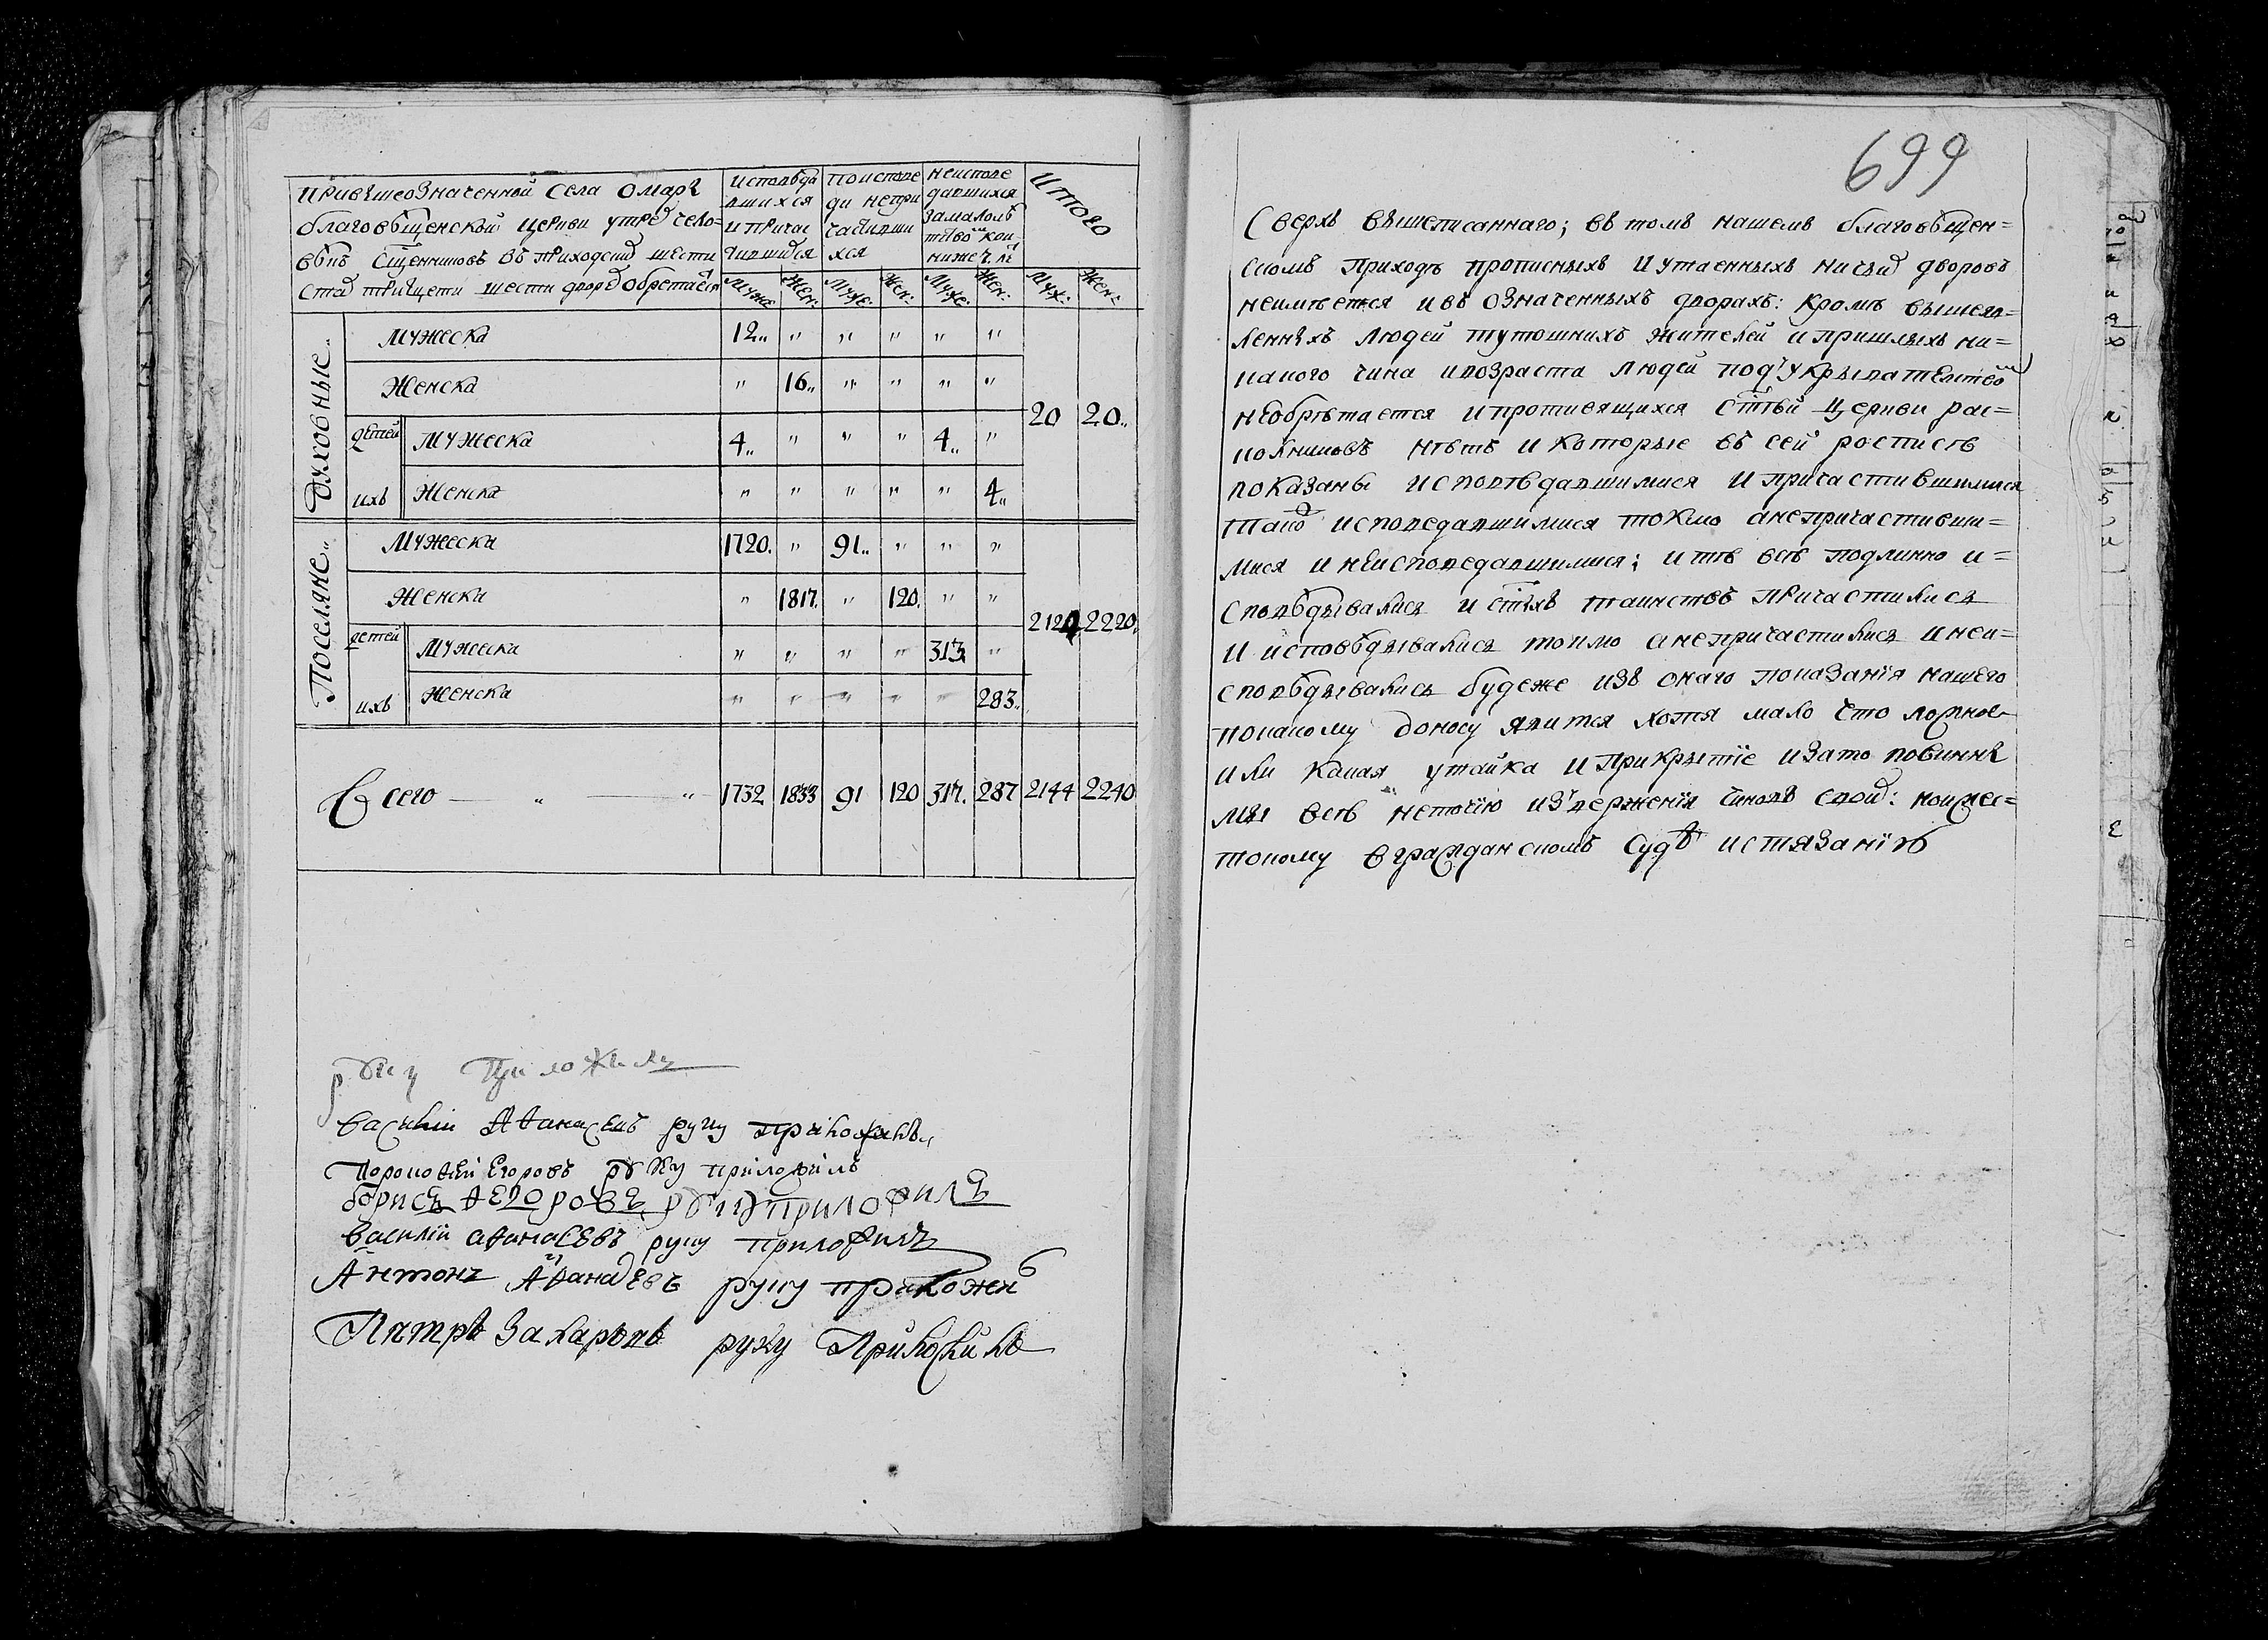 Привышеозначенной Села Омарѣ
благовѣщенской церкви утрех чело=
вѣкъ Сщенниковъ въ приходских шести
стах тритцети шести дворех обретается
исповѣда
вшихся
и причас
тившихся
по испове
ди непри
частивши
хся
неиспове
давшихся
за малолѣ
тством кои
ниже 7. л
Итого
Муже:
Жен:
Муже:
Жен:
Муже:
Жен:
Муж:
Жен:
Духовные..
Мужеска 12.. " " " " "
Женска " 16.. " " " "
детей ихъ
Мужеска 4.. " " " 4.. "
Женска " " " " " 4..
20 20..
Поселяне..
Мужеска 1720. " 91.. " " "
Женска " 1817. " 120. " "
детей ихъ
Мужеска " " " " 313. "
Женска " " " " " 283..
2124 2220.
Всего — " — " 1732 1833 91 120 317. 287 2144 2240
руку Приложилъ
василий Афанасевъ руку приложилъ
Егоровъ руку приложилъ
борисъ Федоровъ руку приложилъ
василий афанасевъ руку приложилъ
Антонъ Афанасевъ руку приложил
Пятръ Захаровъ руку Приложилъ
699
Сверхъ вышеписаннаго; въ томъ нашемъ благовѣщен=
скомъ приходѣ прописныхъ и утаенныхъ ничьих дворовъ
неимѣется и въ означенныхъ дворахъ: кромѣ вышеяв=
ленныхъ людей тутошнихъ жителей и пришлыхъ ни=
какого чина и возраста людей под укрывателством
необрѣтается и противящихся стѣй церкви рас=
колниковъ нѣтъ и которые въ сей росписѣ
показаны исповѣдавшимися и причастившимися
такоѡ исповедавшимися токмо анепричастивши=
мися и неисповедавшимися; и тѣ всѣ подлинно и=
сповѣдывались и стыхъ таинствъ причастились
и исповѣдывались токмо анепричастились и неи=
сповѣдывались будеже изъ онаго показанїя нашего
по какому доносу явится хотя мало что ложное
или какая утайка и прикрытїе и за то повинны
мы всѣ неточїю извержения чиновъ своих: но и жес=
токому в гражданскомъ судѣ истязанїю